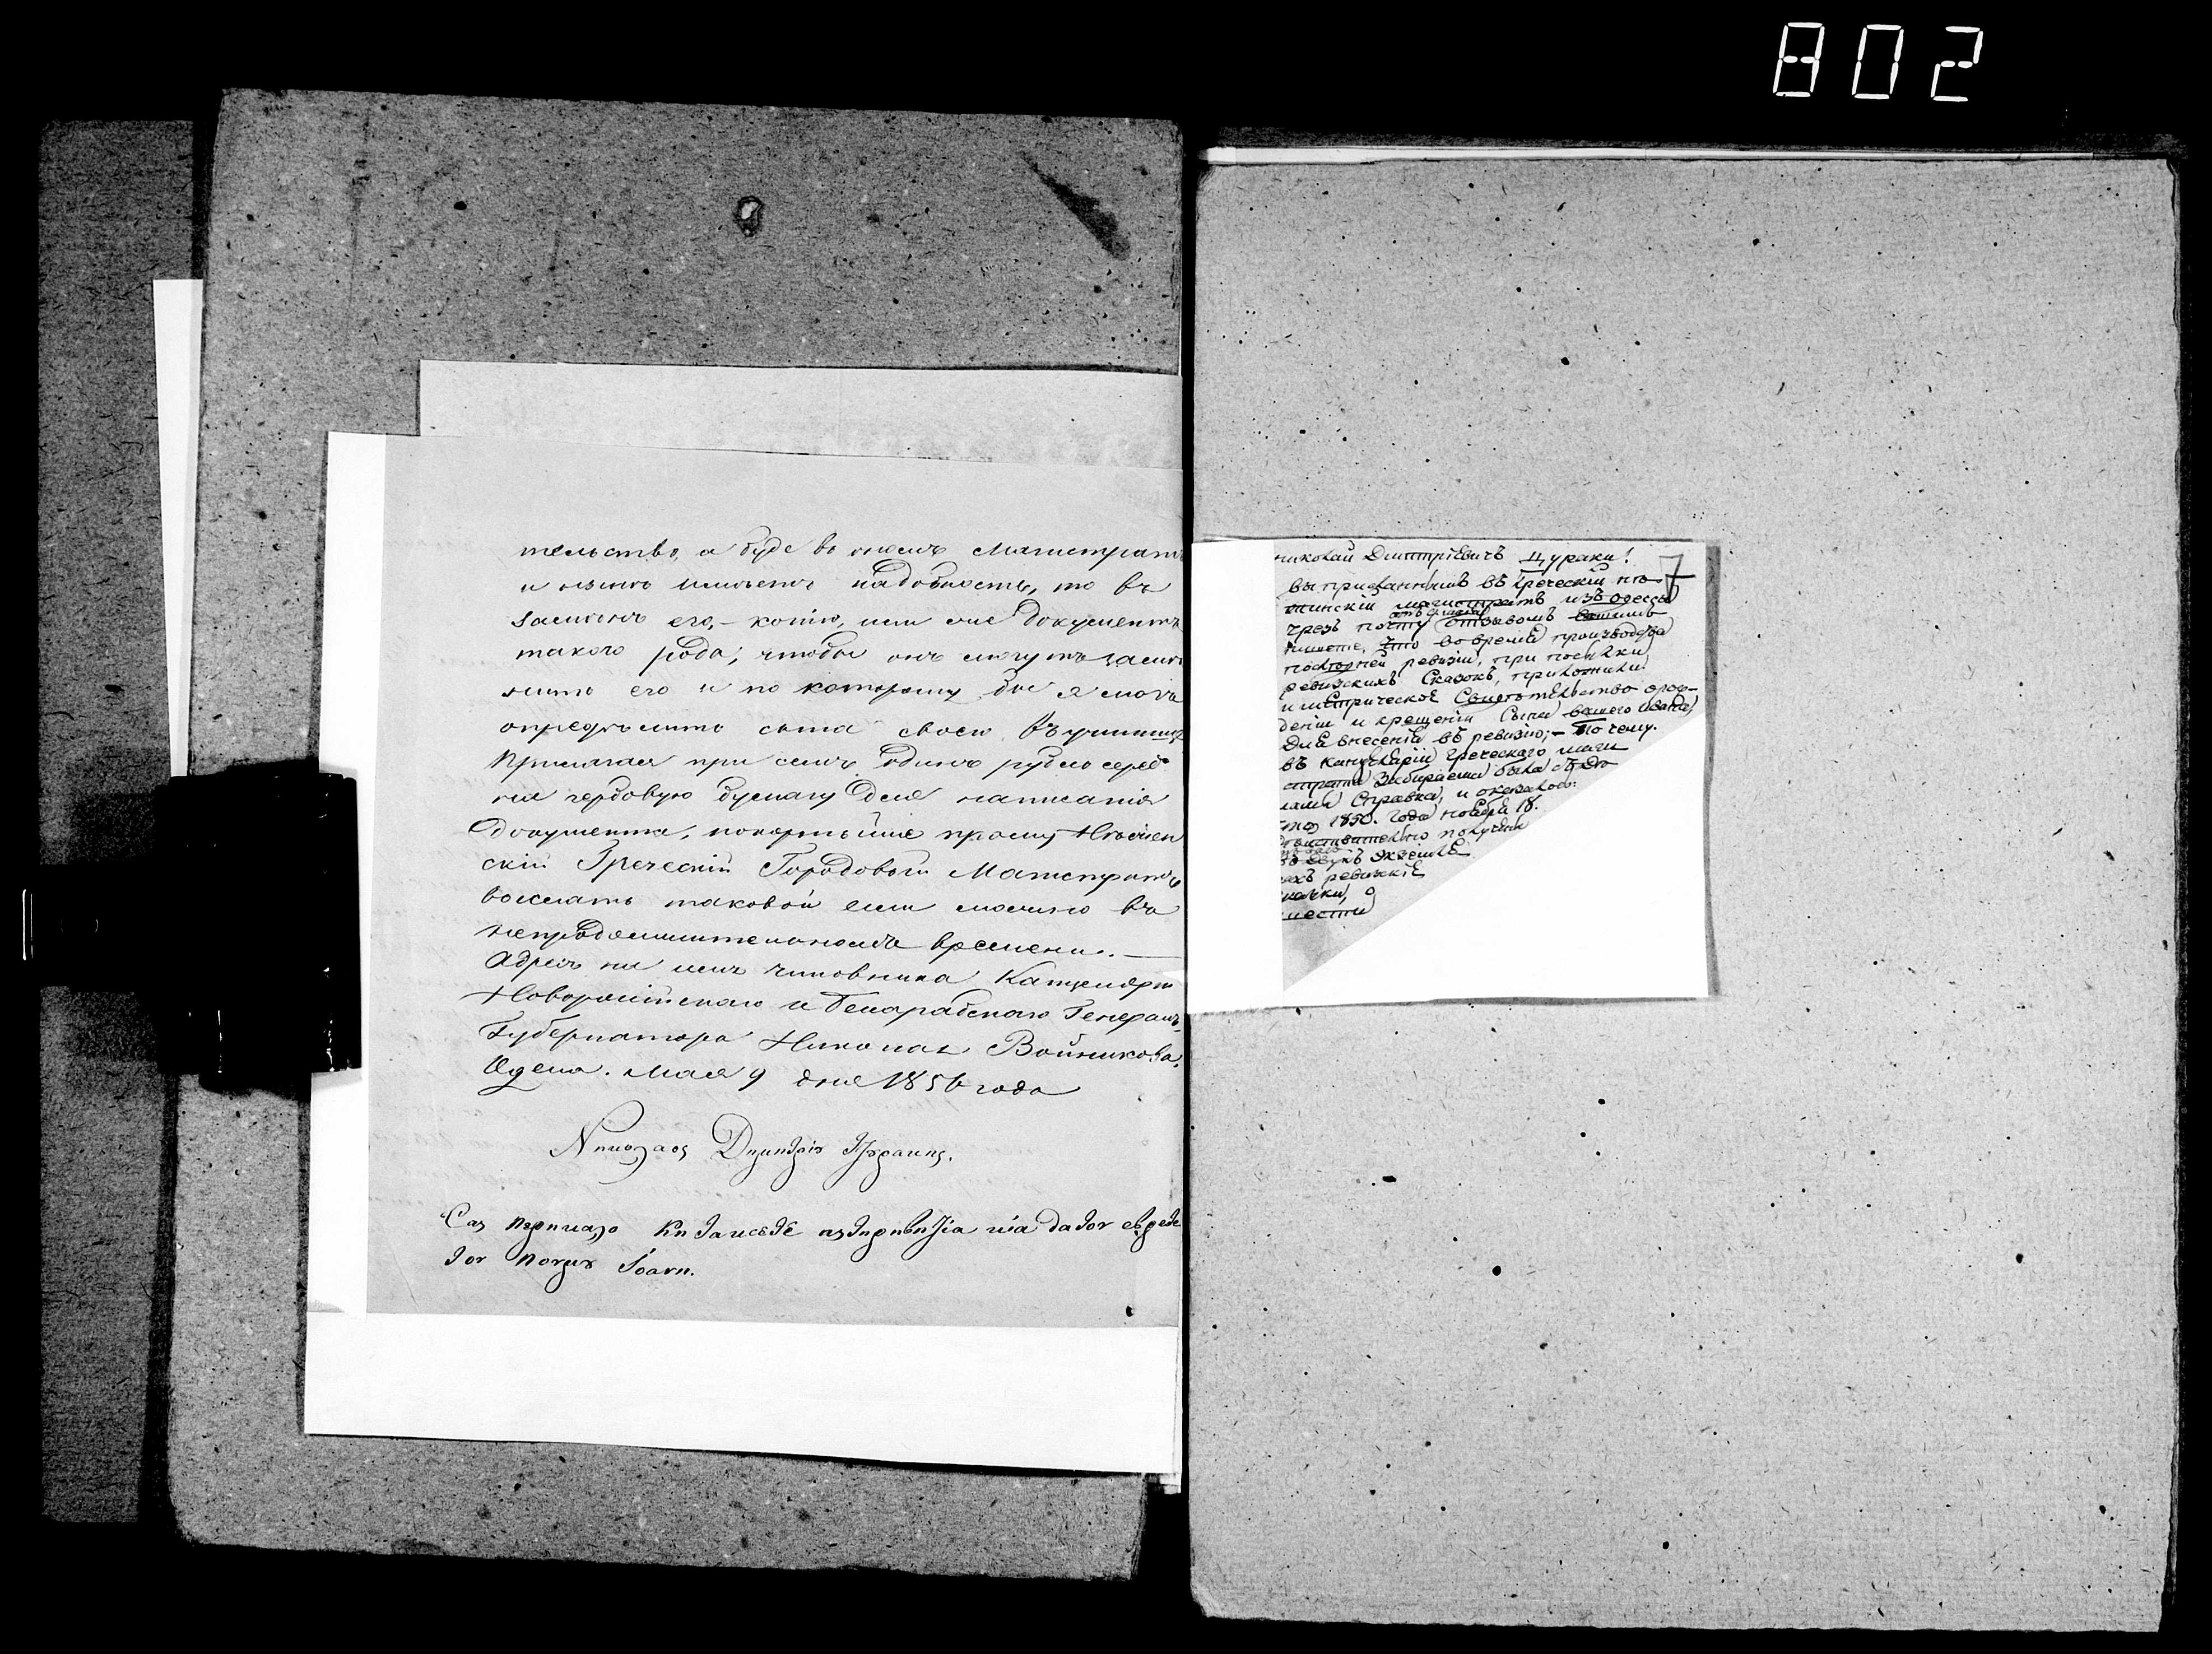 802
тельство, а буде во ономъ Магистратѣ
и нынѣ имѣется надобность, то въ
замѣнъ его, – копію, или же документъ
такого рода, чтобы онъ могутъ замѣ
нить его и по которому бы я могъ
опредѣлить сына своего въ училище
Прилагая при семъ одинъ рубль сереб
на гербовую бумагу для написанія
документа, покорнѣйше прошу Нѣжин
скій Греческій Городовый Магистратъ
выслать таковой если можно въ
непродолжительномъ времени. —
Адресъ на имя чиновника Канцеляріи
Новороссійскаго и Бессарабскаго Генералъ-
Губернатора Николая Войникова.
Одесса. Мая 9 дня 1856 года
Νικολαος Δημητριου Τζυρακης.
τον Ιοανη.
Николай Дмитріевичъ Цураки!
7
Вы присланнымъ въ Греческій нѣ-
жинскій магистратъ изъ одессы
чрезъ почту отзывомъ вашимъ
пишете, что во время производства
ревизіи, при посылки
ревизскихъ Сказокъ, приложили
и метрическое Свидѣтельство о рож-
деніи и крещеніи Сына вашего Ивана,
для внесенія въ ревизію; – По чему.
въ Канцеляріи Греческаго маги
страта Забираема была съ дѣ
лами Справка, и оказалось:
что 1850. года ноября 18.
дѣйствительно получены
въ двухъ экземпля
рахъ ревизкіе
сказки,